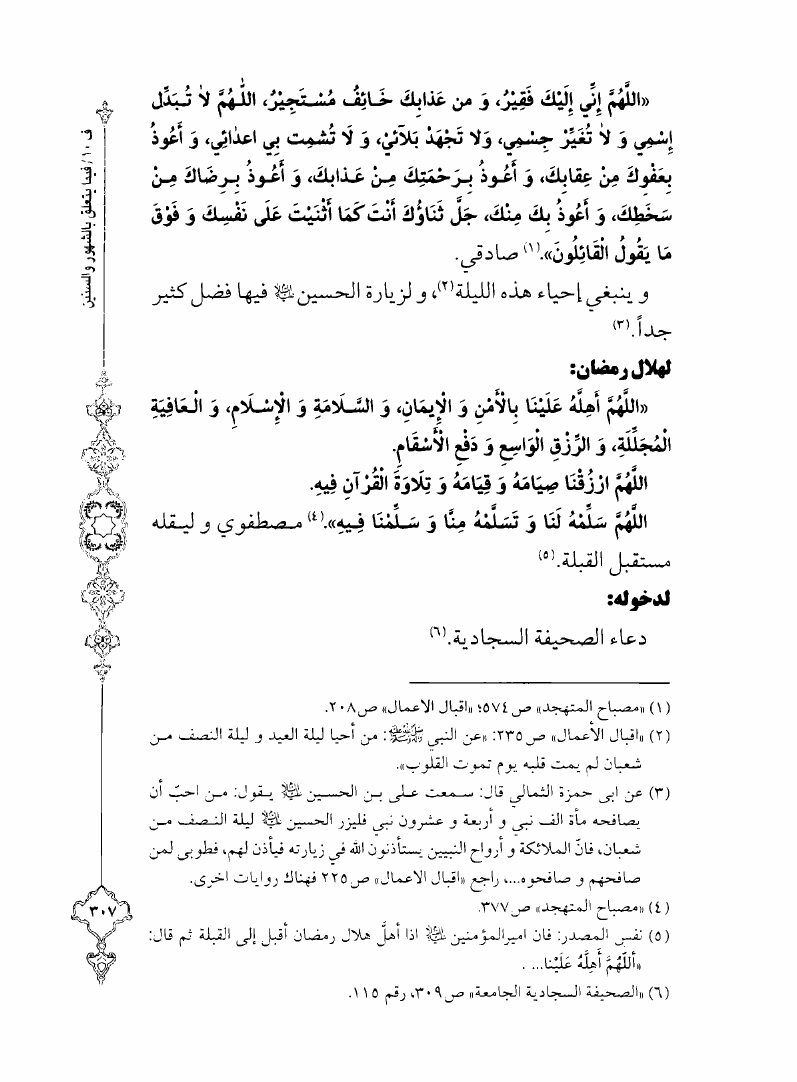 «اللَّهُمَّ إِنِّي إِلَيْكَ فَقِيْرُ، وَ من عَذابِكَ خَـائِفُ مُسْـتَجِيْرُ، اللّٰـهُمَّ لاٰ تُـبَدِّل
إِسْمِي وَ لاٰ تُغَيِّرْ جِسْمِي، وَلا تَجْهَدْ بَلآئيْ، وَ لَا تُشمِت بِي اعدٰائِي، وَ أَعُوذُ
بِعَفْوِكَ مِنْ عِقابِكَ، وَ أَعُوذُ بِـرَحْمَتِكَ مِـنْ عَـذابِكَ، وَ أَعُـوذُ بِـرِضَاكَ مِـنْ
سَخَطِكَ، وَ أَعُوذُ بِكَ مِنْكَ، جَلَّ ثَنَاؤُكَ أَنْتَ كَمَا أَثْنَيْتَ عَلَى نَفْسِكَ وَ فَوْقَ
مَا يَقُولُ الْقَائِلُونَ».(١) صادقي.
و ينبغي إحياء هذه الليلة(٢)، و لزيارة الحسين عليه السلام فيها فضل كثير
جداً.(٣)
لهلال رمضان:
«اللَّهُمَّ أَهِلَّهُ عَلَيْنَا بِالْأَمْنِ وَ الْإِيمَانِ، وَ السَّـلَامَةِ وَ الْإِسْـلَامِ، وَ الْـعَافِيَةِ
الْمُجَلِّلَةِ، وَ الرِّزْقِ الْوَاسِعِ وَ دَفْعِ الْأَسْقَامِ.
اللَّهُمَّ ارْزُقْنَا صِيَامَهُ وَ قِيَامَهُ وَ تِلَاوَةَ الْقُرْآنِ فِيهِ.
اللَّهُمَّ سَلِّمْهُ لَنَا وَ تَسَلَّمْهُ مِنَّا وَ سَـلِّمْنَا فِـيهِ».(٤) مـصطفوي و ليـقله
مستقبل القبلة.(٥)
لدخوله:
دعاء الصحيفة السجادية.(٦)
(١) «مصباح المتهجد» ص٥٧٤؛ «اقبال الاعمال» ص٢٠٨.
(٢) «اقبال الأعمال» ص٢٣٥: «عن النبي صلى الله عليه وآله: من أحيا ليلة العيد و ليلة النصف مـن
شعبان لم يمت قلبه يوم تموت القلوب».
(٣) عن ابى حمزة الثمالي قال: سـمعت عـلى بـن الحسـين عليه السلام يـقول: مـن احبّ أن
يصافحه مأة الف نبي و أربعة و عشرون نبي فليزر الحسين عليه السلام ليلة النـصف مـن
شعبان، فانّ الملائكة و أرواح النبيين يستأذنون الله في زيارته فيأذن لهم، فطوبى لمن
صافحهم و صافحوه...، راجع «اقبال الاعمال» ص٢٢٥ فهناك روايات اخرى.
(٤) «مصباح المتهجد» ص٣٧٧.
(٥) نفس المصدر: فان اميرالمؤمنين عليه السلام اذا أهلّ هلال رمضان أقبل إلى القبلة ثم قال:
«أَللَّهُمَّ أَهِلَّهُ عَلَيْنا... .
(٦) «الصحيفة السجادية الجامعة» ص٣٠٩، رقم ١١٥.
ف ١٠ / فيما يتعلق بالشهور والسنين
٣٠٧